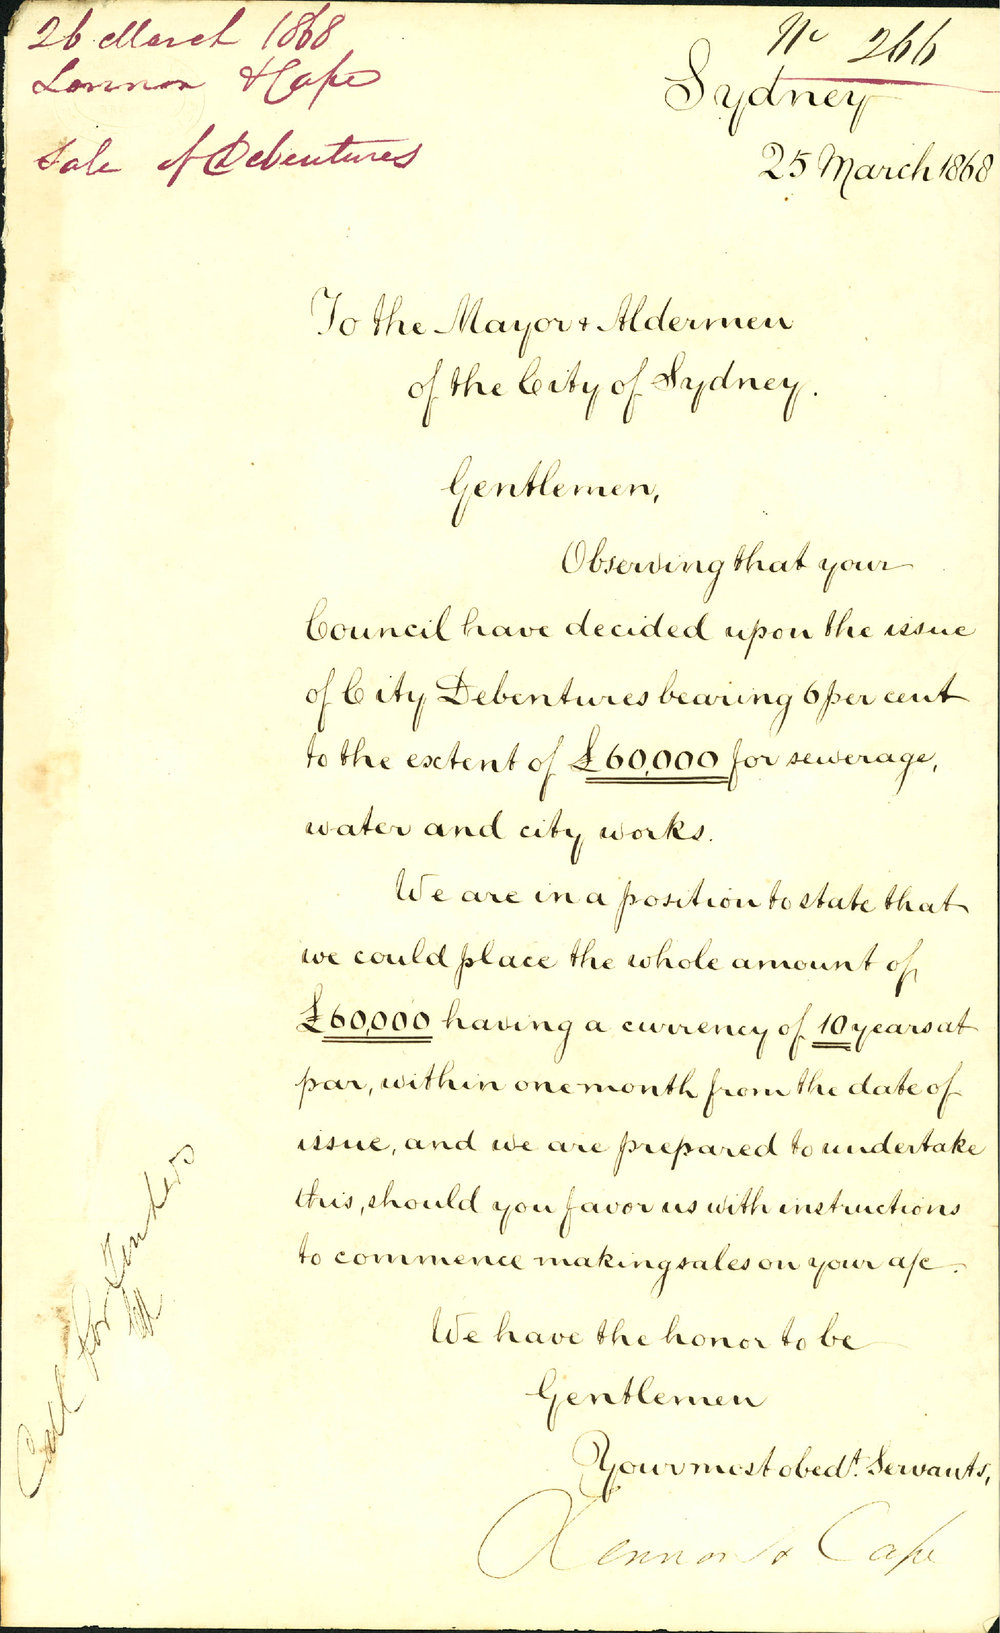 26 March 1868
Lennon & Cape
Sale of Debentures
No 266
Sydney
25 March 1868
To the Mayor & Aldermen
of the City of Sydney.
Gentlemen,
Observing that your
Council have decided upon the issue
of City Debentures bearing 6 per cent
to the extent of £60,000 for sewerage,
water and city works.
We are in a position to state that
we could place the whole amount of
£60,000 having a currency of 10 years at
par, within one month from the date of
issue, and we are prepared to undertake
this, should you favor us with instructions
to commence making sales on your a/c.
We have the honor to be
Gentlemen
Your most obedt. Servants,
Lennon & Cape
Call for Tenders